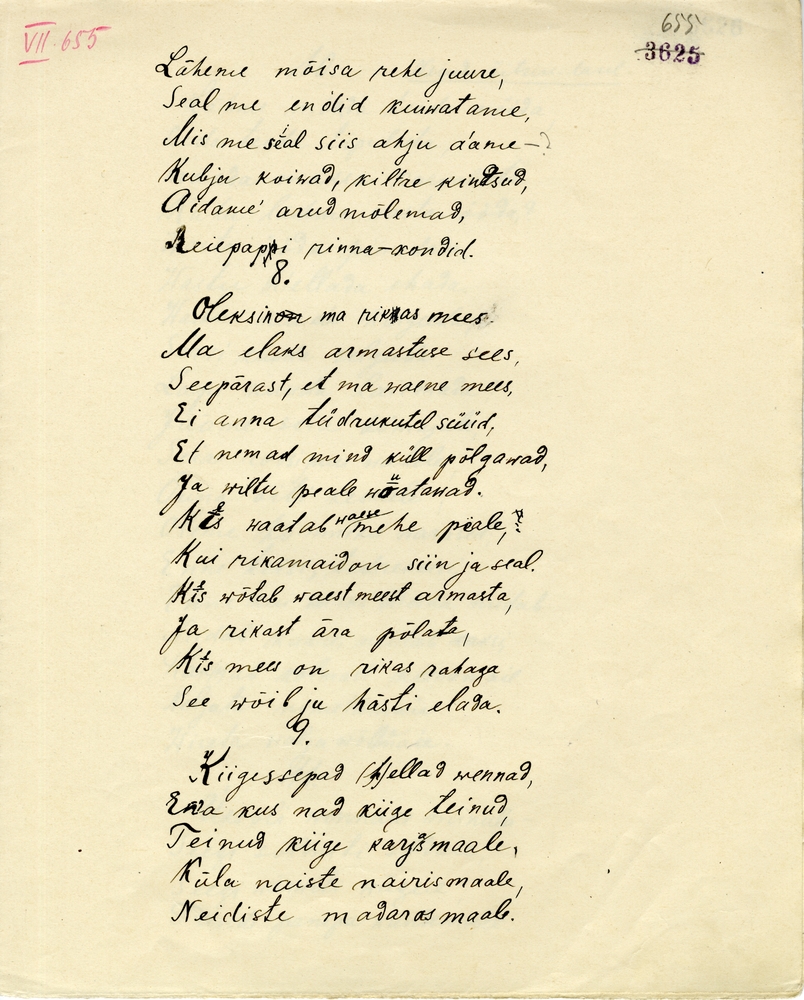 VII 655
655
3625
Läheme mõisa rehe juure,
Seal me endid kuiwatame,
Mis me seal siis ahju aame –?
Kubja koiwad, kiltre kintsud,
Aidame' arud mõlemad,
Reiepappi rinna-kondid.
8.
Oleksin ma rikkas mees.
Ma elaks armastuse sees,
Seepärast, et ma waene mees,
Ei anna tüdrukutel süüd,
Et nemad mind küll põlgawad,
Ja wiltu peale waatawad.
Kes waatab waese mehe peale,
Kui rikamaid on siin ja seal.
Kes wõtab waest meest armasta,
Ja rikast ära põlata,
Kes mees on rikas rahaga
See wõib ju hästi elada.
9.
Kiigessepad (h)ellad wennad,
Ewa kus nad kiige teinud,
Teinud kiige karjasmaale,
Küla naiste nairismaale,
Neidiste madarasmaale.